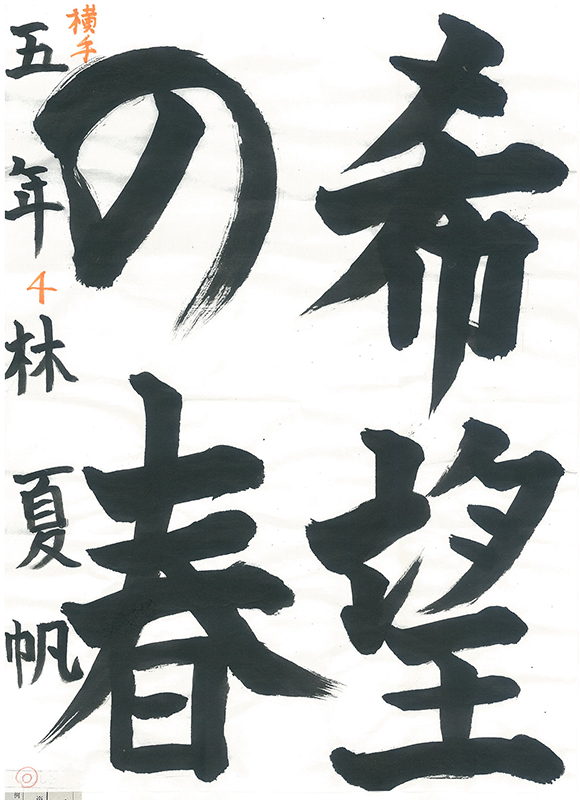 希望
の春
横手
五年4林夏帆